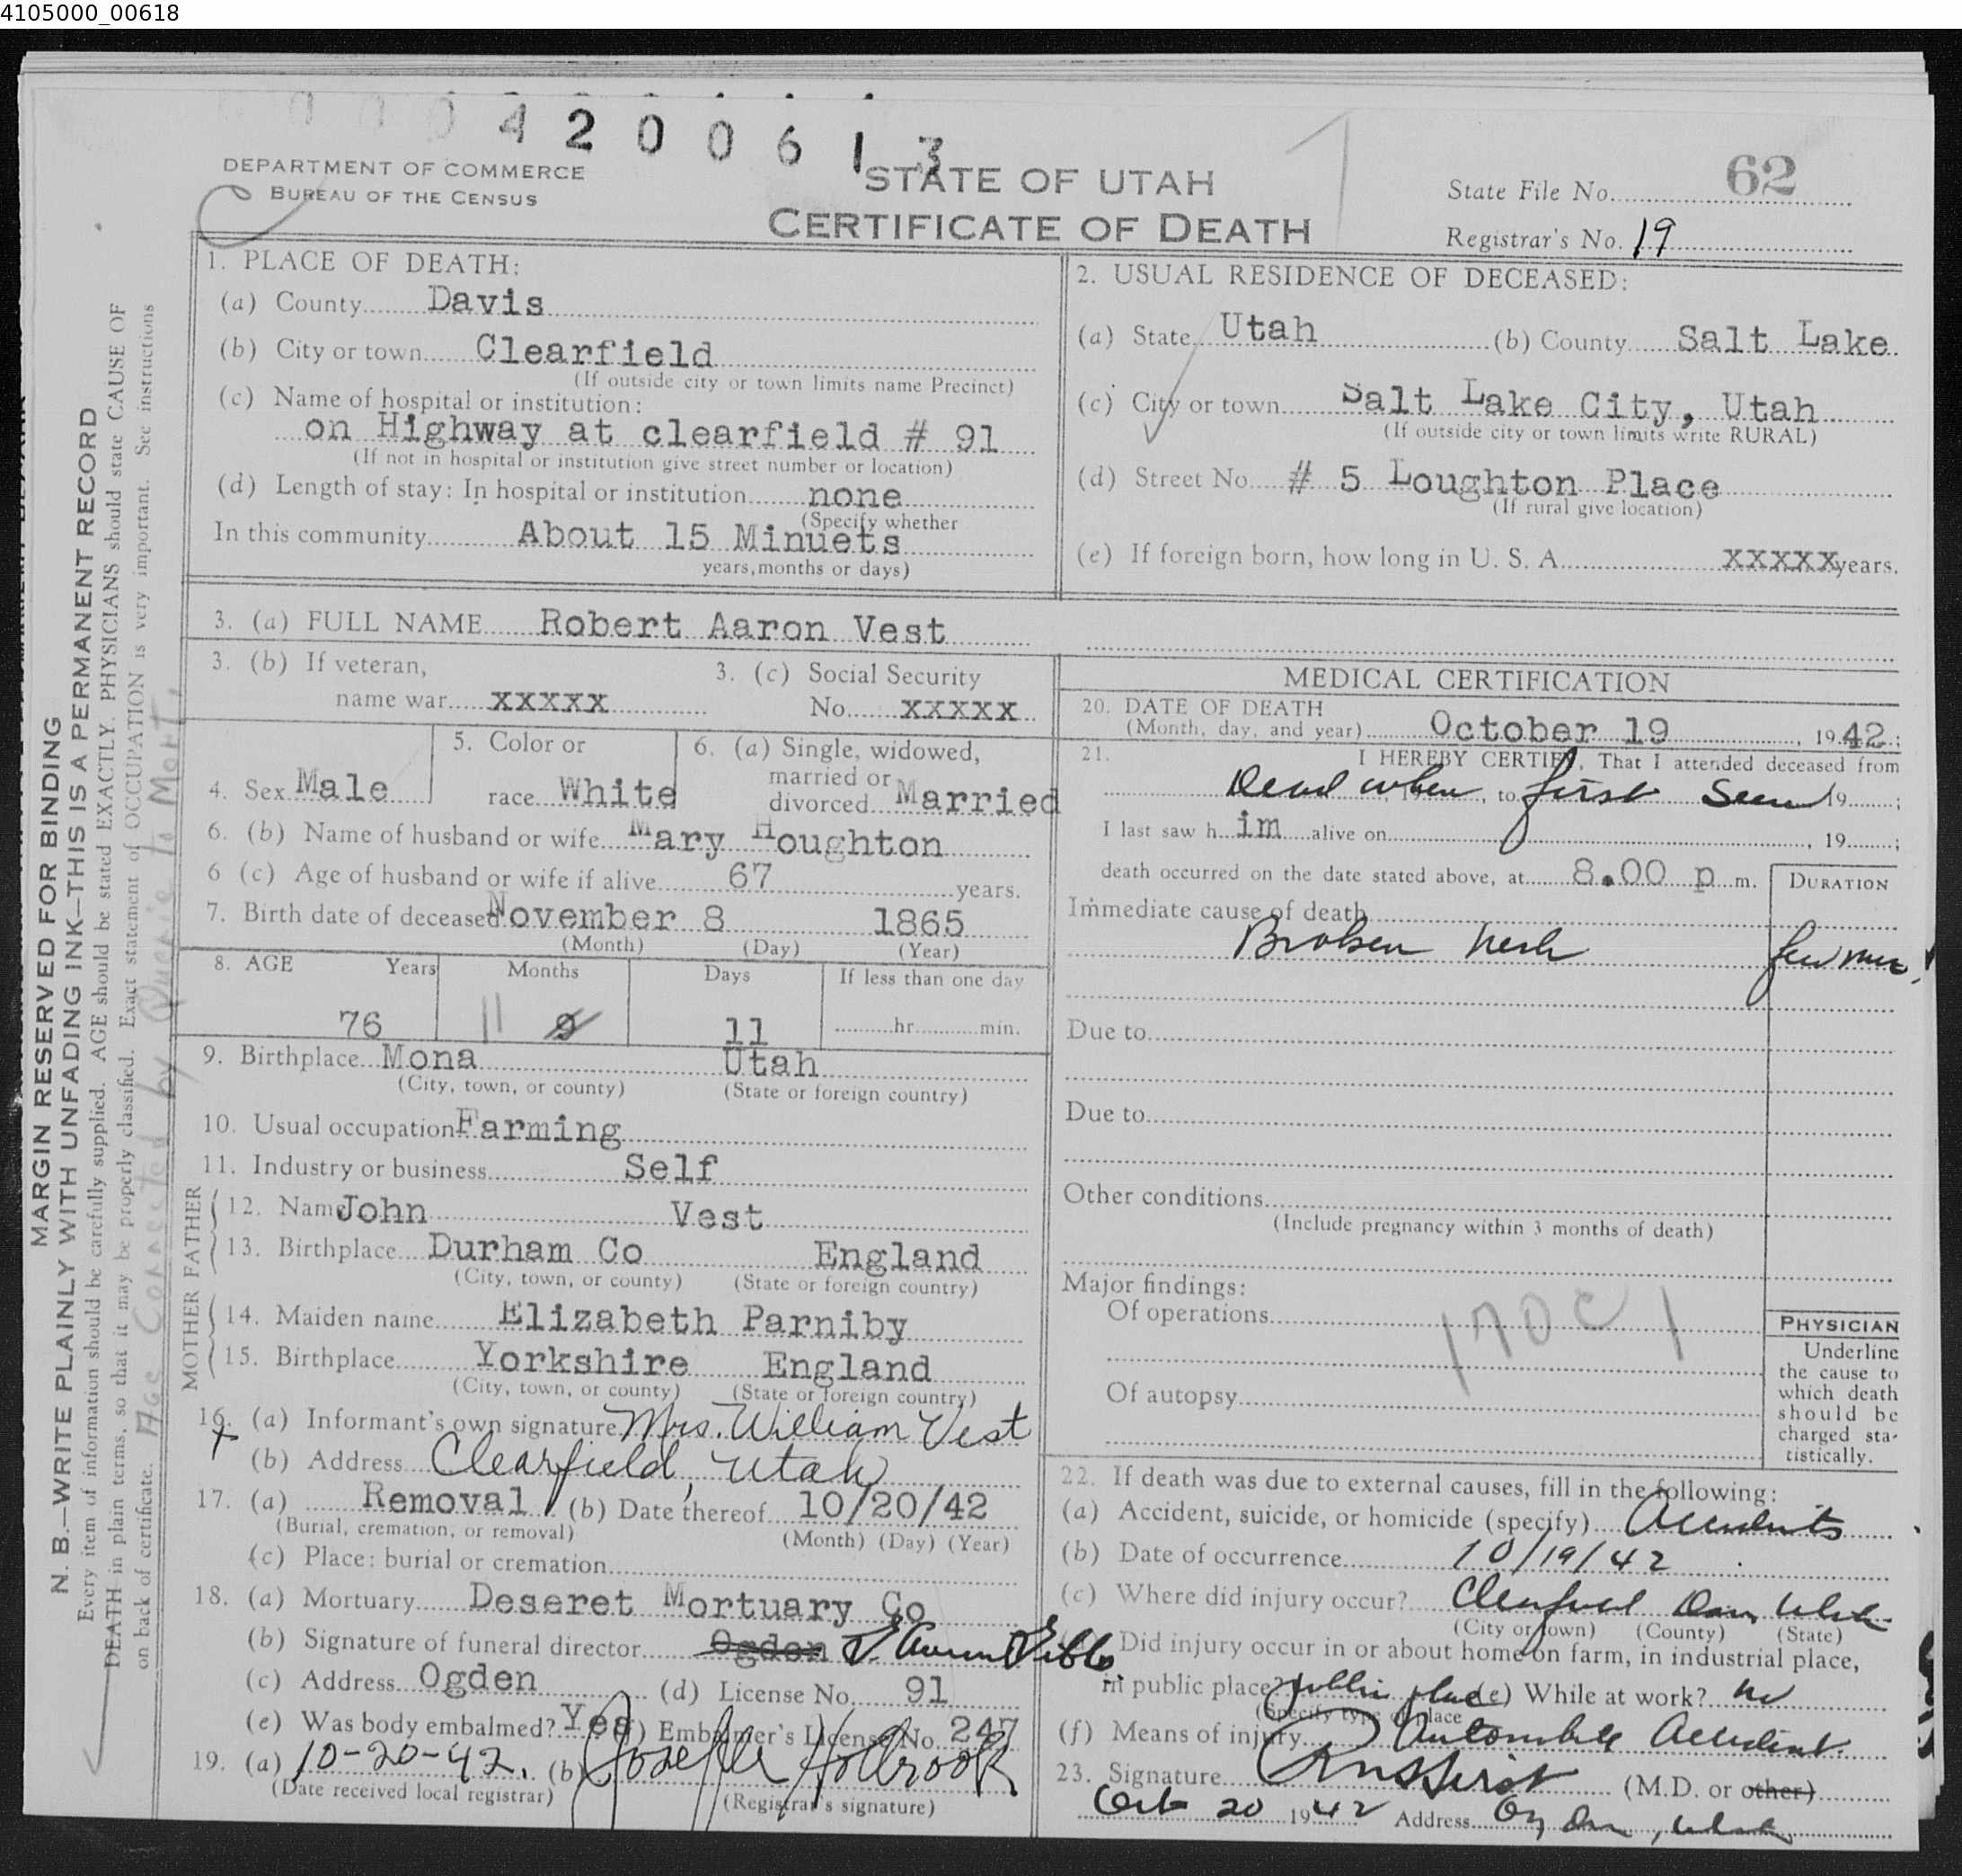 4105000_00618
0004200613
DEPARTMENT OF COMMERCE
BUREAU OF THE CENSUS
STATE OF UTAH
CERTIFICATE OF DEATH
State File No. 62
Registrar's No. 19
1. PLACE OF DEATH:
(a) County Davis
(b) City or town Clearfield
(If outside city or town limits name Precinct)
(c) Name of hospital or institution:
on Highway at clearfield # 91
(If not in hospital or institution give street number or location)
(d) Length of stay: In hospital or institution none
(Specify whether
In this community About 15 Minuets
years, months or days)
2. USUAL RESIDENCE OF DECEASED:
(a) State Utah (b) County Salt Lake
(c) City or town Salt Lake City, Utah
(If outside city or town limits write RURAL)
(d) Street No. # 5 Loughton Place
(If rural give location)
(e) If foreign born, how long in U. S. A. XXXXX years.
3. (a) FULL NAME Robert Aaron Vest
3. (b) If veteran,
name war xxxxx
3. (c) Social Security
No. xxxxx
4. Sex Male
5. Color or
race White
6. (a) Single, widowed,
married or
divorced Married
6. (b) Name of husband or wife Mary Houghton
6 (c) Age of husband or wife if alive 67 years.
7. Birth date of deceased November 8 1865
(Month) (Day) (Year)
8. AGE Years Months Days If less than one day
76 11 9 11 hr. min.
9. Birthplace Mona Utah
(City, town, or county) (State or foreign country)
10. Usual occupation Farming
11. Industry or business Self
FATHER
12. Name John Vest
13. Birthplace Durham Co England
(City, town, or county) (State or foreign country)
MOTHER
14. Maiden name Elizabeth Parniby
15. Birthplace Yorkshire England
(City, town, or county) (State or foreign country)
16. (a) Informant's own signature Mrs. William Vest
(b) Address Clearfield, Utah
17. (a) Removal (b) Date thereof 10/20/42
(Burial, cremation, or removal) (Month) (Day) (Year)
(c) Place: burial or cremation
18. (a) Mortuary Deseret Mortuary Co
(b) Signature of funeral director Ogden
(c) Address Ogden (d) License No. 91
(e) Was body embalmed? Yes (f) Embalmer's License No. 247
19. (a) 10-20-42. (b) Holbrook
(Date received local registrar) (Registrar's signature)
MEDICAL CERTIFICATION
20. DATE OF DEATH
(Month, day, and year) October 19, 1942;
21. I HEREBY CERTIFY, That I attended deceased from
Dead when, to first Seen 19 ;
I last saw him alive on , 19 ;
death occurred on the date stated above, at 8.00 p m.
DURATION
Immediate cause of death
Broken neck few min.
Due to
Due to
Other conditions
(Include pregnancy within 3 months of death)
Major findings:
Of operations
Of autopsy
170C1
PHYSICIAN
Underline
the cause to
which death
should be
charged sta-
tistically.
22. If death was due to external causes, fill in the following:
(a) Accident, suicide, or homicide (specify) Accidents
(b) Date of occurrence 10/19/42
(c) Where did injury occur? Clearfield Davis Utah
(City or town) (County) (State)
Did injury occur in or about home on farm, in industrial place,
in public place? public place (e) While at work? no
(Specify type of place
(f) Means of injury Automobile Accident.
23. Signature (M.D. or other)
Oct 20 1942 Address Ogden, Utah
MARGIN RESERVED FOR BINDING
N. B.—WRITE PLAINLY WITH UNFADING INK—THIS IS A PERMANENT RECORD
Every item of information should be carefully supplied. AGE should be stated EXACTLY. PHYSICIANS should state CAUSE OF
DEATH in plain terms, so that it may be properly classified. Exact statement of OCCUPATION is very important. See instructions
on back of certificate.
Age Corrected by Querie to Mort.